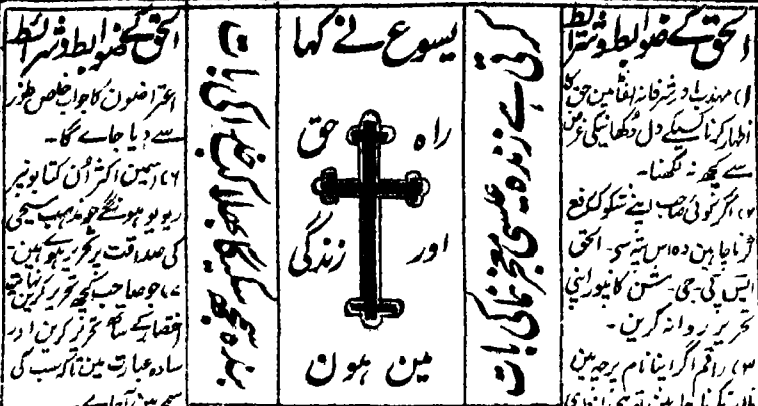 الحق کے ضوابط و شرائط
(۱) مہذب اور شرفانہ الفاظ مین حق کا
اظہار کرنا کسیکے دل دُکھانیکی غرض
سے کچھ نہ لکھنا۔
(۲) اگر کوئی صاحب اپنے شکوک رفع
کرنا چاہین وہ اس پتہ سے۔ الحق
ایس پی۔ جی۔ مشن کانپور اپنی
تحریر روانہ کرین۔
(۳) راقم اگر اپنا نام پرچہ مین
کرتی ہے زندہ عیسیٰ معجز نما کی بات
یسوع نے کہا
راہ حق
اور زندگی
مین ہون
بندہ سمجھ سکیگا بھلا کب خدا کی بات
الحق کے ضوابط و شرائط
اعتراضون کا جواب خاص طور
سے دیا جاے گا۔
(۶) اسمین اکثر اُن کتابونپر
ریویو ہونگے جو مذہب مسیحی
کی صداقت پر تحریر ہوے ہین۔
(۷) جو صاحب کچھ تحریر کرین نہایت
اختصار کے ساتھ تحریر کرین اور
سادہ عبارت مین تاکہ سب کی
سمجھ مین آجاے۔